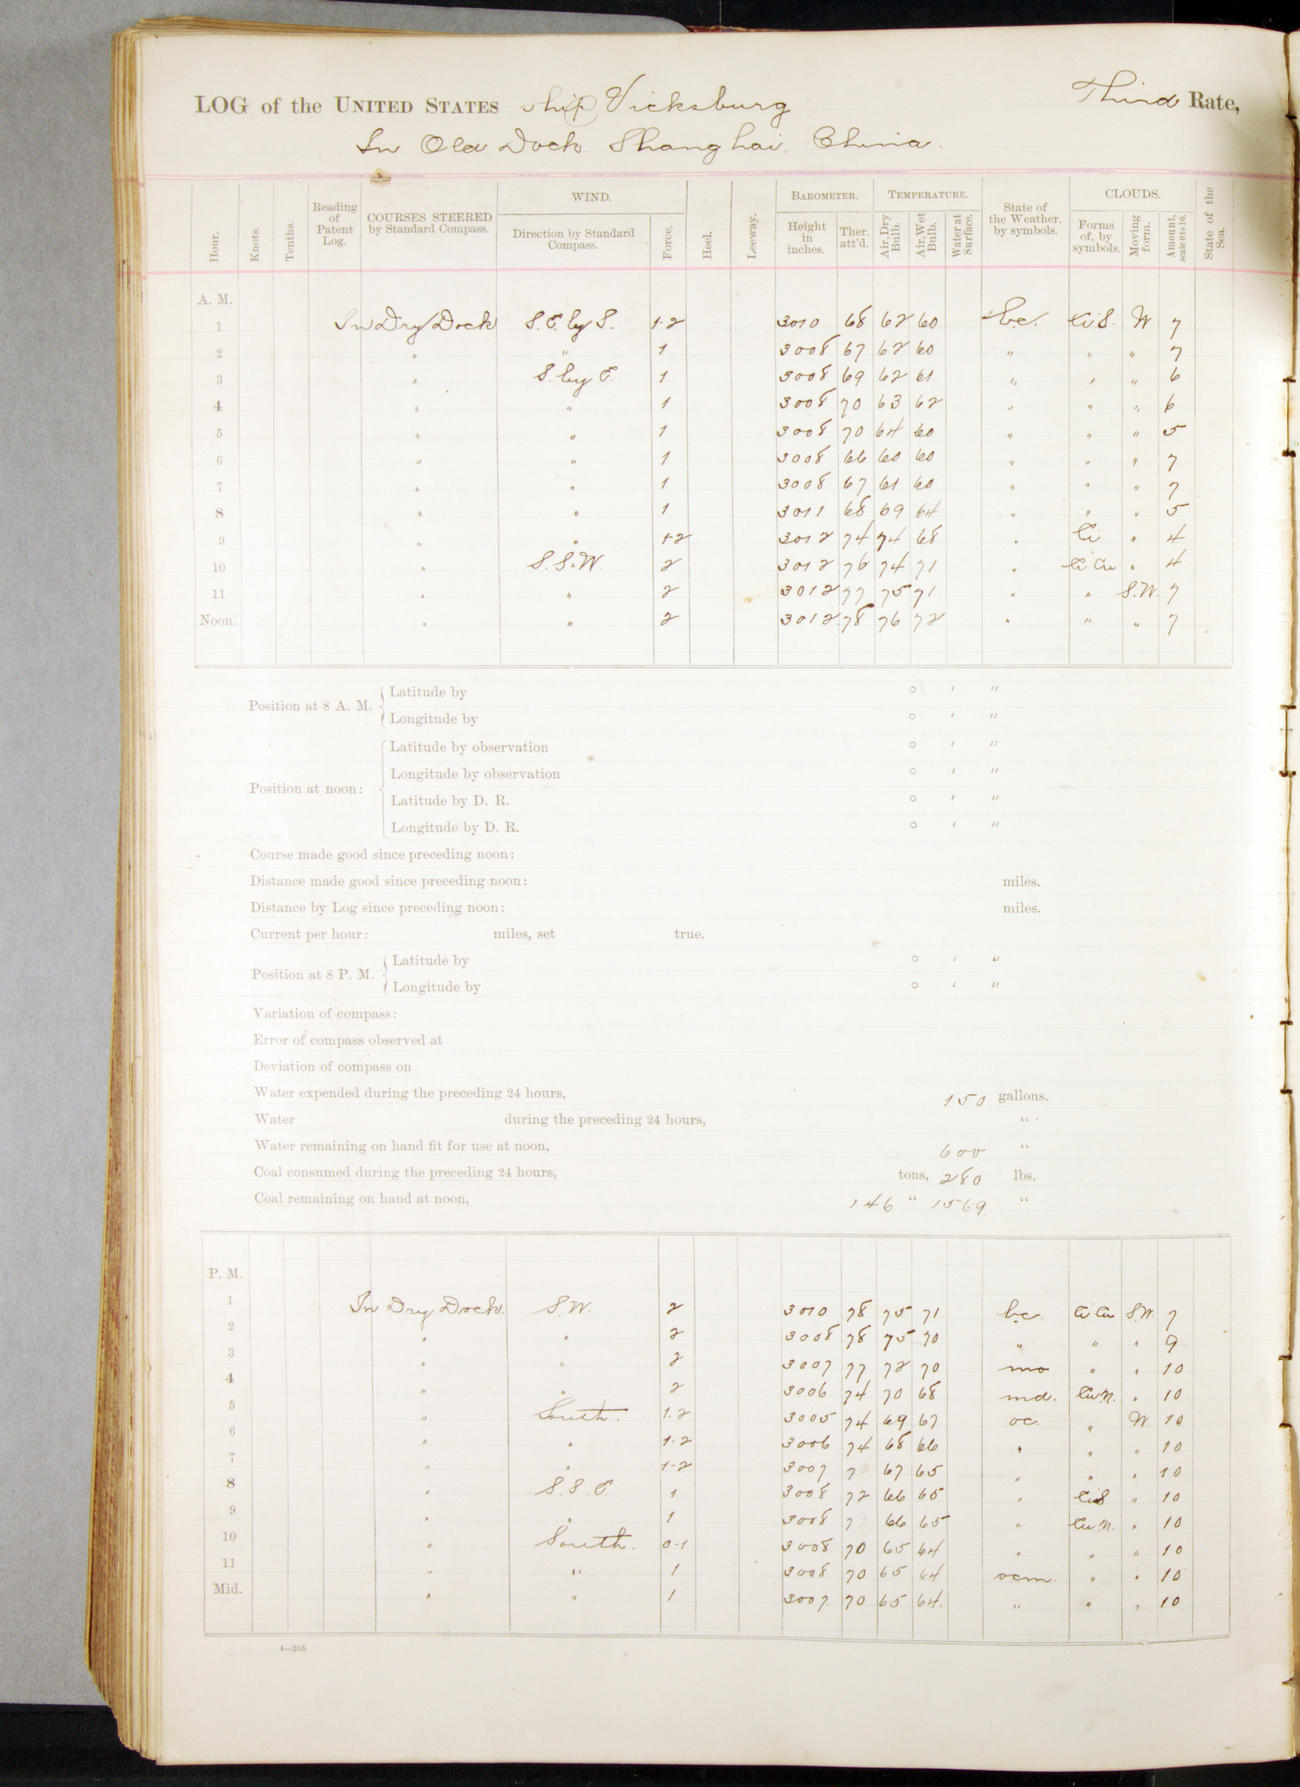 LOG of the UNITED STATES ship Vicksburg Third Rate,
In Old Dock Shanghai, China.
Hour. Knots. Tenths. Reading of Patent Log. COURSES STEERED by Standard Compass. WIND. Direction by Standard Compass. Force. Heel. Leeway. BAROMETER. Height in inches. Ther. att'd. TEMPERATURE. Air, Dry Bulb. Air, Wet Bulb. Water at Surface. State of the Weather, by symbols. CLOUDS. Forms of, by symbols. Moving form. Amount, scale 0 to 10. State of the Sea.
A. M.
1 In Dry Dock S.E. by S. 1-2 3010 68 62 60 b.c. Ci S. W 7
2 " " 1 3008 67 62 60 " " " 7
3 " S. by E. 1 3008 69 62 61 " " " 6
4 " " 1 3008 70 63 62 " " " 6
5 " " 1 3008 70 64 60 " " " 5
6 " " 1 3008 66 60 60 " " " 7
7 " " 1 3008 67 61 60 " " " 7
8 " " 1 3011 68 69 64 " " " 5
9 " " 1-2 3012 74 74 68 " Ci " 4
10 " S.S.W. 2 3012 76 74 71 " Ci Cu " 4
11 " " 2 3012 77 75 71 " " S.W. 7
Noon. " " 2 3012 78 76 72 " " " 7
Position at 8 A. M. { Latitude by ° ' "
Longitude by ° ' "
Position at noon: { Latitude by observation ° ' "
Longitude by observation ° ' "
Latitude by D. R. ° ' "
Longitude by D. R. ° ' "
Course made good since preceding noon:
Distance made good since preceding noon: miles.
Distance by Log since preceding noon: miles.
Current per hour: miles, set true.
Position at 8 P. M. { Latitude by ° ' "
Longitude by ° ' "
Variation of compass:
Error of compass observed at
Deviation of compass on
Water expended during the preceding 24 hours, 150 gallons.
Water during the preceding 24 hours, "
Water remaining on hand fit for use at noon, 600 "
Coal consumed during the preceding 24 hours, tons, 280 lbs.
Coal remaining on hand at noon, 146 " 1569. "
P. M.
1 In Dry Dock. S.W. 2 3010 78 75 71 bc. Ci Cu S.W. 7
2 " " 2 3008 78 75 70 " " " 9
3 " " 2 3007 77 72 70 mo " " 10
4 " " 2 3006 74 70 68 md. Cu.N. " 10
5 " South. 1-2 3005 74 69 67 oc. " W. 10
6 " " 1-2 3006 74 68 66 " " " 10
7 " " 1-2 3007 7 67 65 " " " 10
8 " S.S.E. 1 3008 72 66 65 " Ci S " 10
9 " " 1 3008 7 66 65 " Cu.N. " 10
10 " South. 0-1 3008 70 65 64 " " " 10
11 " " 1 3008 70 65 64 ocm. " " 10
Mid. " " 1 3007. 70 65 64. " " " 10
4—265